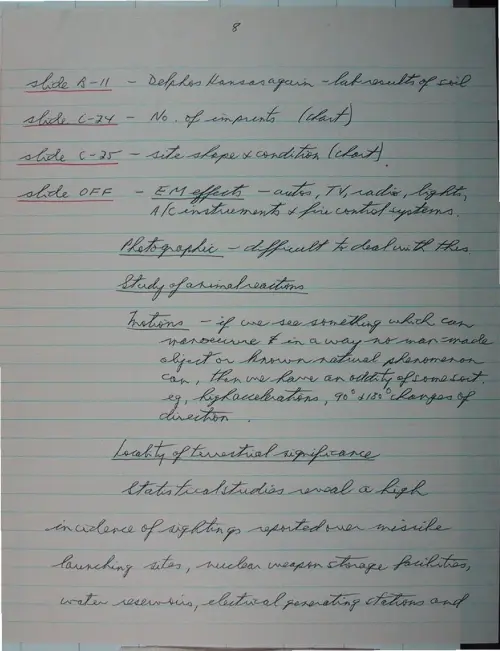 8
slide A-11 - Delphos Kansas again - lab results of soil
slide C-24 - No. of imprints (chart)
slide C-25 - site shape & condition (chart)
slide OFF - EM effects - autos, TV, radio, lights,
A/C instruments & fire control systems.
Photographic - difficult to deal with this
Study of animal reactions
Motions - if we see something which can
manoeuvre & in a way no man-made
object or known natural phenomenon
can, then we have an oddity of some sort.
eg, high accelerations, 90° & 180° changes of
direction.
Locality of terrestrial significance
Statistical studies reveal a high
incidence of sightings reported over missile
launching sites, nuclear weapon storage facilities,
water reservoirs, electrical generating stations and